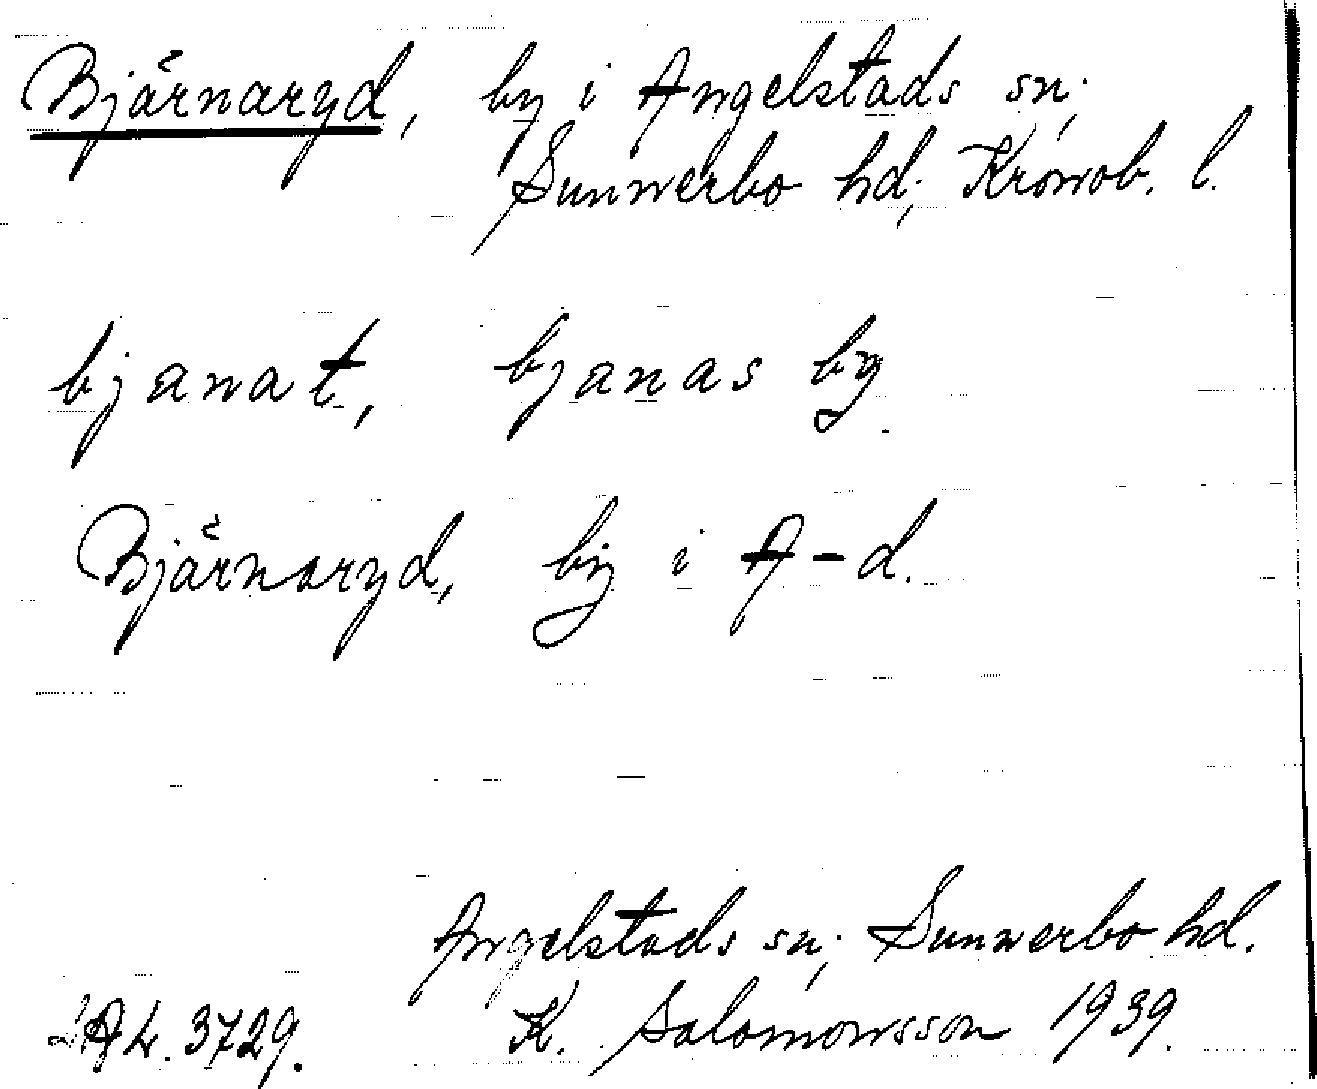 Bjärnaryd, by i Angelstads sn;
Sunnerbo hd; Kronob. l.
bjanat, bjanas by
Bjärnaryd, by i A-d.
Angelstads sn; Sunnerbo hd.
4. 3729. K. Salomonsson 1939.